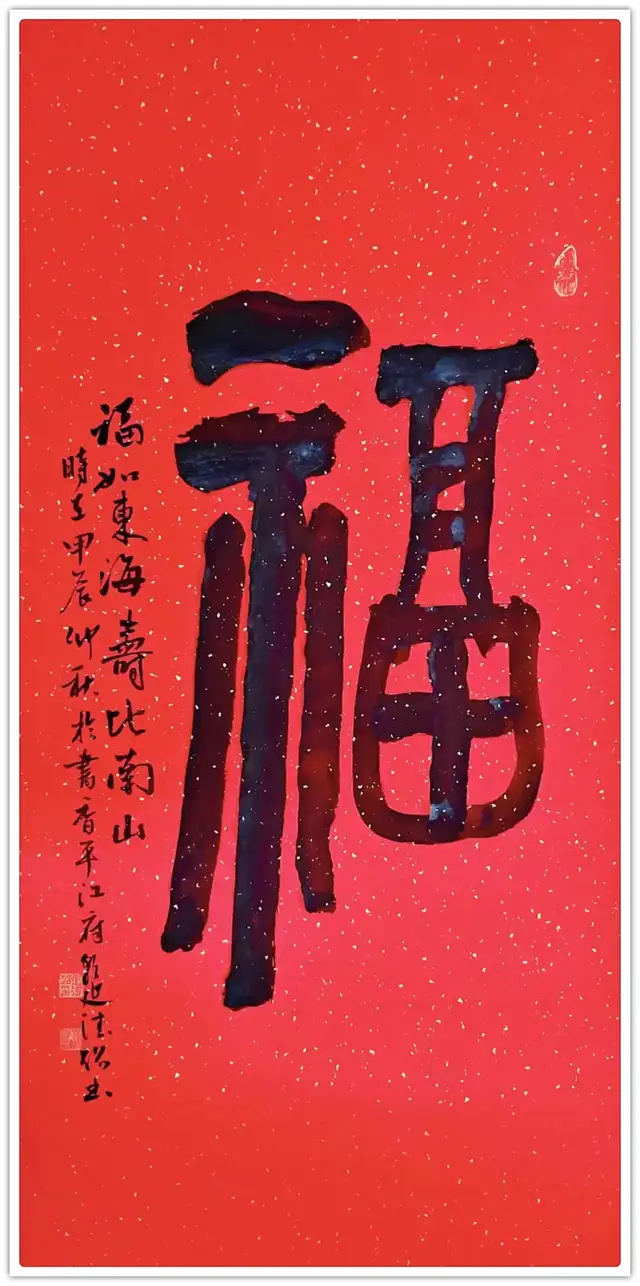 福
福如東海壽比南山
時在甲辰仲秋於書香平江府